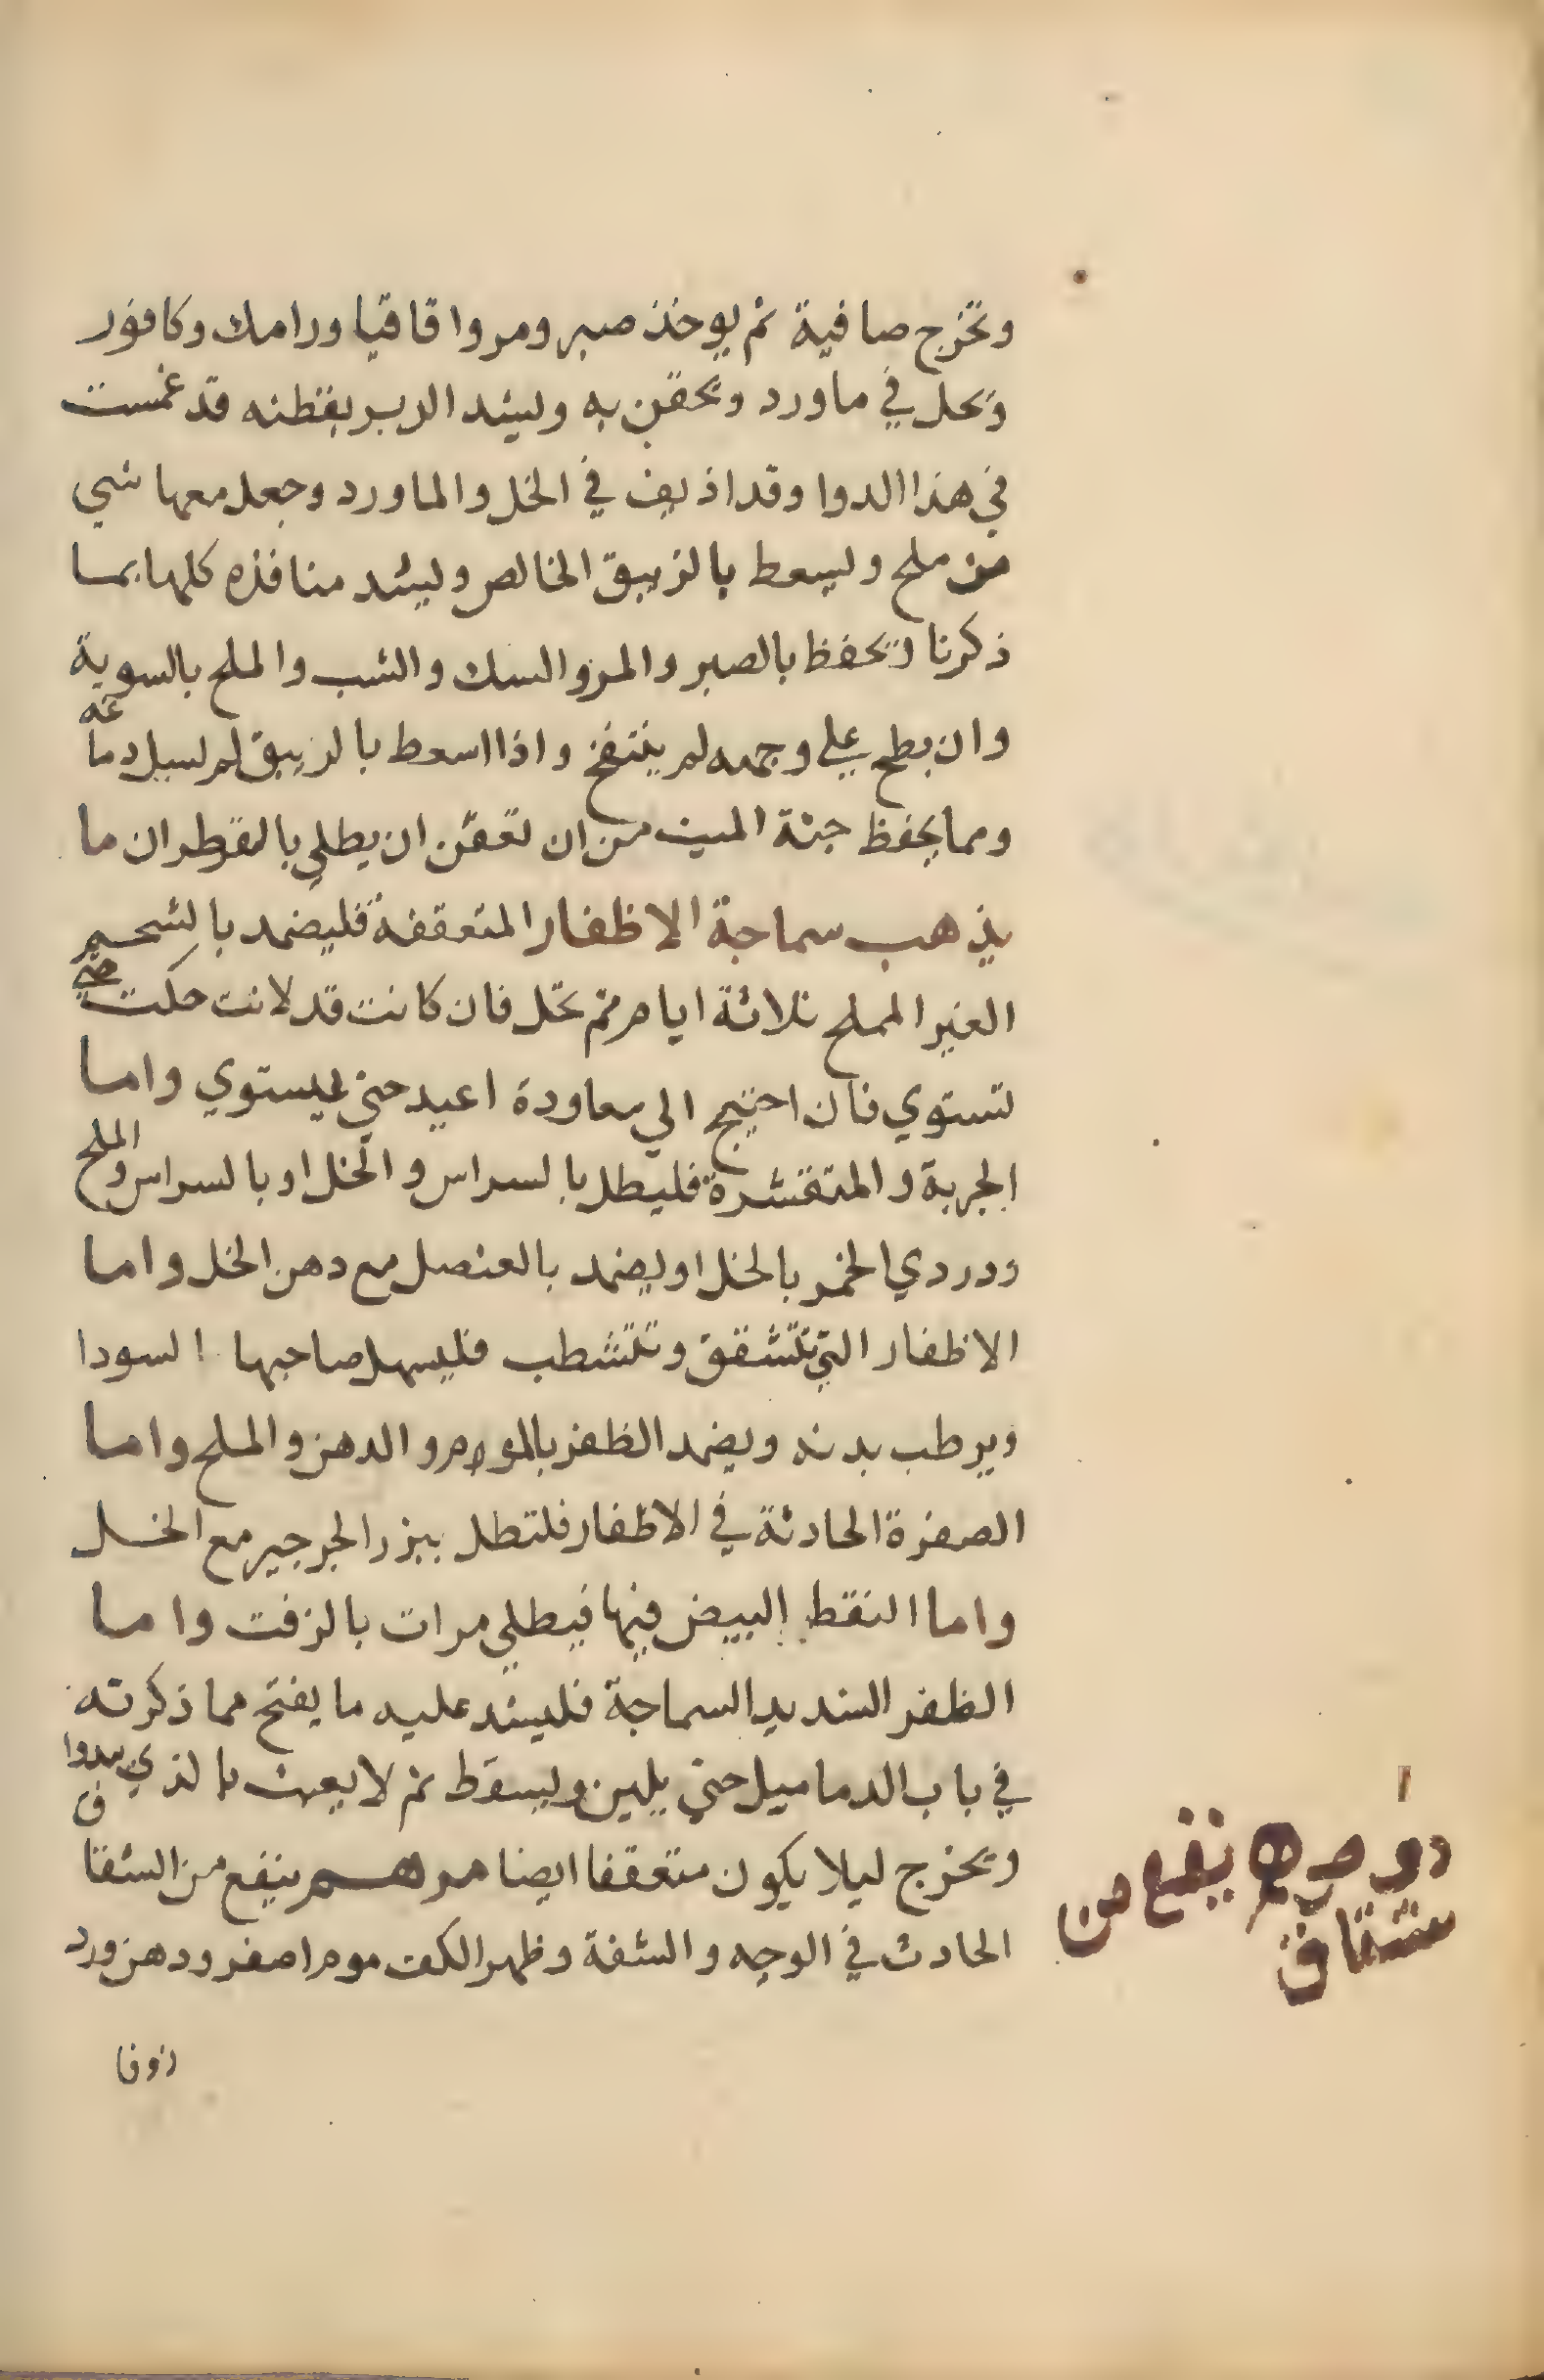 وتخرج صافية ثم يوخذ صبر ومر واقاقيا ورامك وكافور
وتحل في ماورد وتحقن به وليشد الدبر بقطنه قد غمست
في هذا الدوا وقد اذيف في الخل والماورد وجعل معها شي
من ملح وليسعط بالزيبق الخالص وليشد منافذه كلها بما
ذكرنا وتحفظ بالصبر والمر والسك والشب والملح بالسوية
وان بطح علي وجهه لم ينتفخ واذا اسعط بالزيبق لم لسيل دماغه
ومما يحفظ جثة الميت من ان تعفن ان يطلي بالقطران ما
يذهب سماجة الاظفار المتعقفة فليضمد بالشحم
الغير المملح ثلاثة ايام ثم تحل فان كانت قد لانت حكت حتي
تستوي فان احتيج الي معاودة اعيد حتي ليستوي واما
الجربة والمتقشرة فليطل بالسراس والخل او بالسراس والملح
ودردي الخمر بالخل او ليضمد بالعنصل مع دهن الخل واما
الاظفار التي تتشقق وتتشطب فليسهل صاحبها السودا
ويرطب بدنه ويضمد الظفر بالموم والدهن والملح واما
الصفرة الحادثة في الاظفار فلتطل ببزر الجرجير مع الخل
واما النقط البيض فيها فيطلي مرات بالزفت واما
الظفر الشديد السماجة فليشد عليه ما يفتح مما ذكرته
في باب الدماميل حتي يلين ويسقط ثم لا يعبث بالذي يبدوا
ويخرج ليلا يكون متعقفا ايضا مرهم ينفع من الشقاق
الحادث في الوجه والشفة وظهر الكف موم اصفر ودهن ورد
زوفا
ينفع من
شقاق